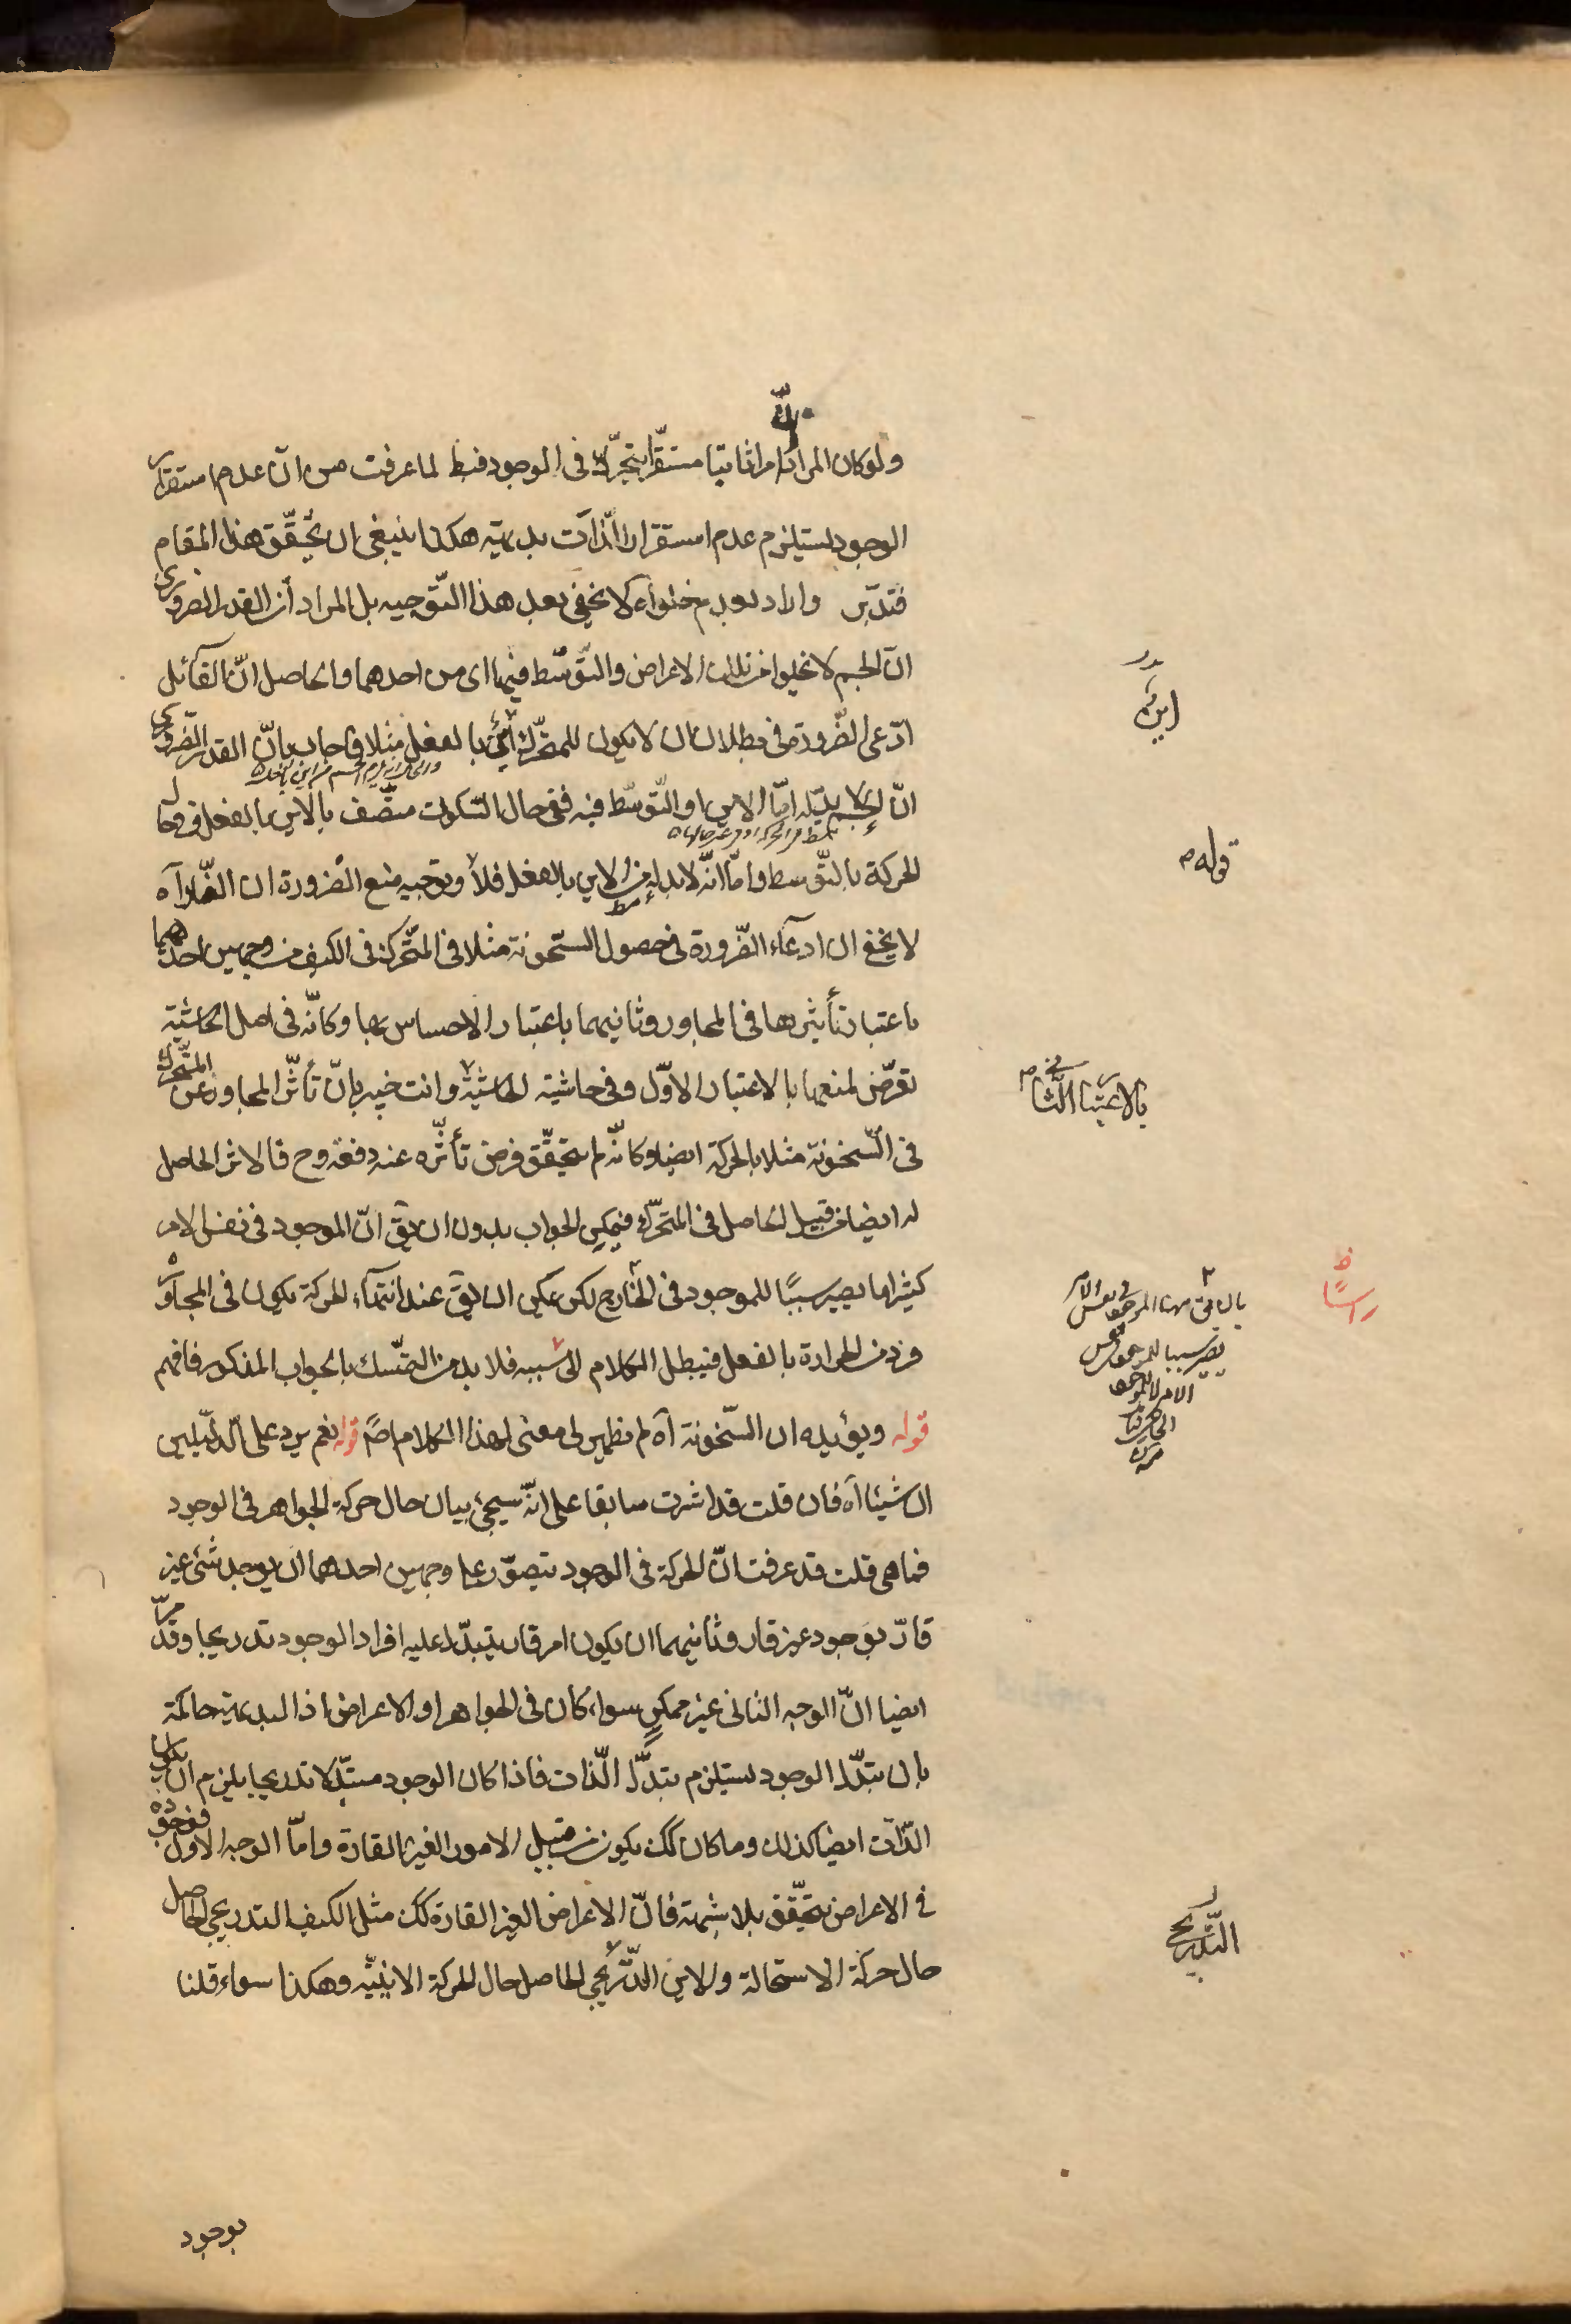 ولو كان المراد امرا ثابتا مستقرا يتحرك فى الوجود فبط لما عرفت من ان عدم استقرار
الوجود يستلزم عدم استقرار الذات بديهية هكذا ينبغى ان يحقق هذا المقام
فتدبر واراد بعدم خلوه آه لا يخفى بعد هذا التوجيه بل المراد أن القدر الضرورى
ان الجسم لا يخلو من تلك الاعراض والتوسط فيها اى من احدهما والحاصل ان القائل
ادعى الضرورة فى بطلان ان لا يكون للمتحرك أين بالفعل مثلا فاجاب بان القدر الضرورى
ان الجسم لا بد له اما الاين او التوسط فيه ففى حال السكون متصف بالاين بالفعل وفى حال
الحركة بالتوسط واما انه لا بد له من الاين بالفعل فلا وتوجيه منع الضرورة ان الضار آه
لا يخفى ان ادعاء الضرورة فى حصول السخونة مثلا فى المتحرك فى الكيف من وجهين احدهما
باعتبار تأثيرها فى المجاور وثانيهما باعتبار الاحساس بها وكانه فى اصل الحاشية
تعرض لمنعها بالاعتبار الاول وفى حاشية الحاشية وانت خبير بان تأثر المجاور عن المتحرك
فى السخونة مثلا بالحركة ايضا وكانه لم يتحقق فرض تأثره عنه دفعة وح فالاثر الحاصل
له ايضا من قبيل الحاصل فى المتحرك فيمكن الجواب بدون ان يق ان الموجود فى نفس الامر
كثيرا ما يصير سببا للموجود فى الخارج لكن يمكن ان يق عند انتهاء الحركة يكون فى المجاور
فرد من الحرارة بالفعل فيبطل الكلام الى سببه فلا بد من التمسك بالجواب المذكور فافهم
قوله ويؤيده ان السخونة آه لم يظهر لى معنى لهذا الكلام اصلا قوله نعم يرد على الدليلين
ان شيئا آه فان قلت قد اشرت سابقا على انه سيجئ بيان حال حركة الجواهر فى الوجود
فما هى قلت قد عرفت ان الحركة فى الوجود يتصور على وجهين احدهما ان يوجد شئ غير
قار بوجود غير قار وثانيهما ان يكون امر قار يتبدل عليه افراد الوجود تدريجا وقد مر
ايضا ان الوجه الثانى غير ممكن سواء كان فى الجواهر او الاعراض اذ البديهية حاكمة
بان تبدل الوجود يستلزم تبدل الذات فاذا كان الوجود متبدلا تدريجا يلزم ان يكون
الذات ايضا كذلك وما كان كك يكون من قبيل الامور الغير القارة واما الوجه الاول فوجوده
فى الاعراض يتحقق بلا شبهة فان الاعراض الغير القارة كك مثل الكيف التدريجى الحاصل
حال حركة الاستحالة والاين التدريجى الحاصل حال الحركة الاينية وهكذا سواء قلنا
بوجود
اين
قوله
بالاعتبار الثانى
راسًا
التدريجى